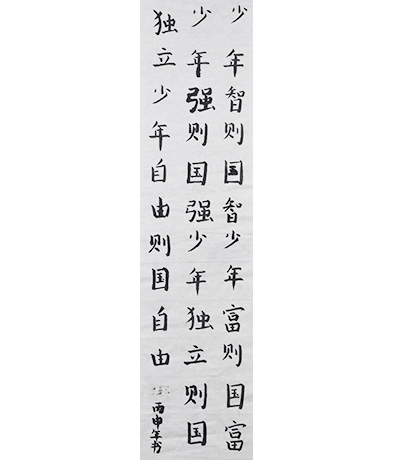 少年智则国智少年富则国富
少年强则国强少年独立则国
独立少年自由则国自由
丙申年书